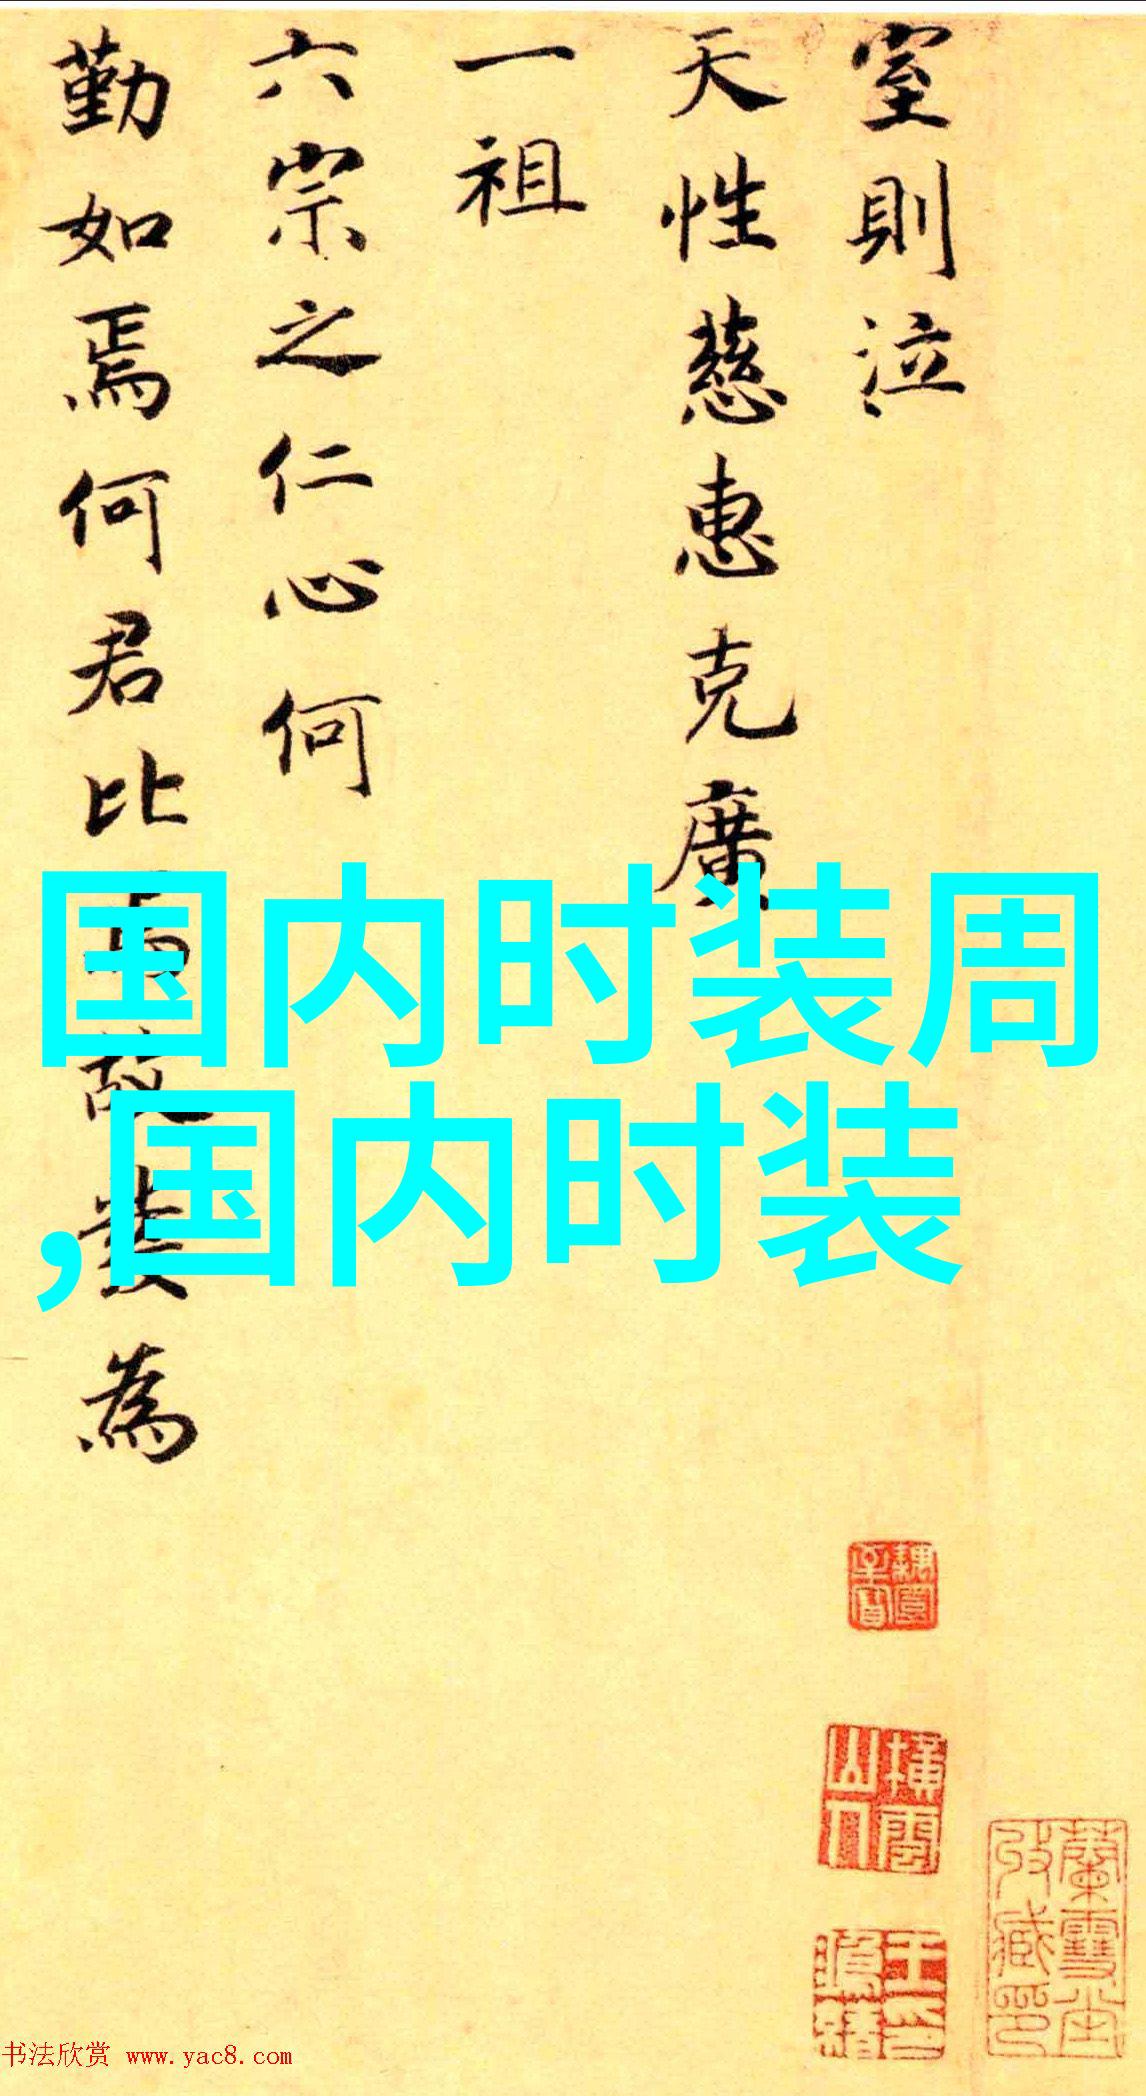 室則泣
天性慈惠克廣
一祖
六宗之仁心何
勤如焉何君比
為
国内时装周
,国内时装
横雲山人
蘭雪堂收藏印
书法欣赏 www.yac8.com